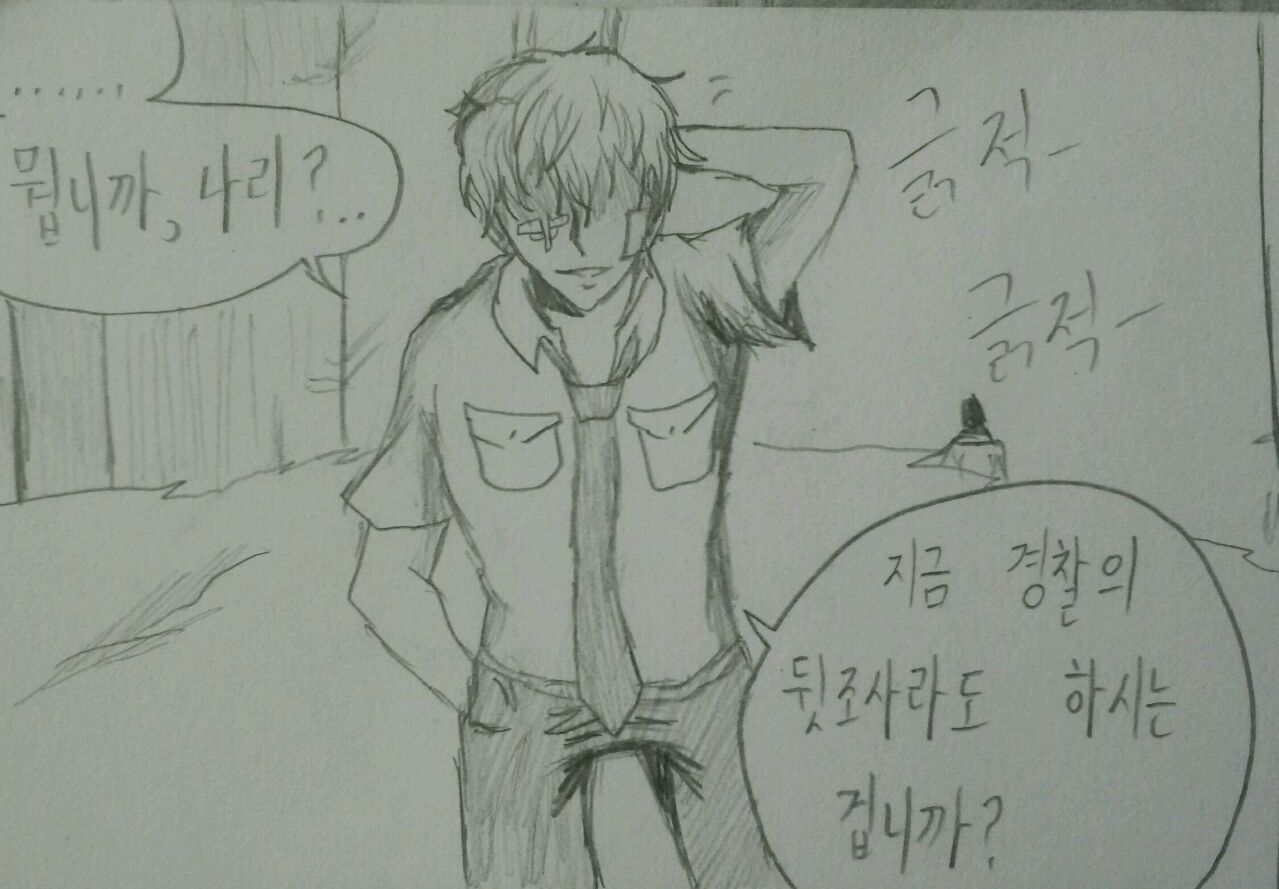 ......
뭡니까, 나리?..
긁적-
긁적-
지금 경찰의
뒷조사라도 하시는
겁니까?